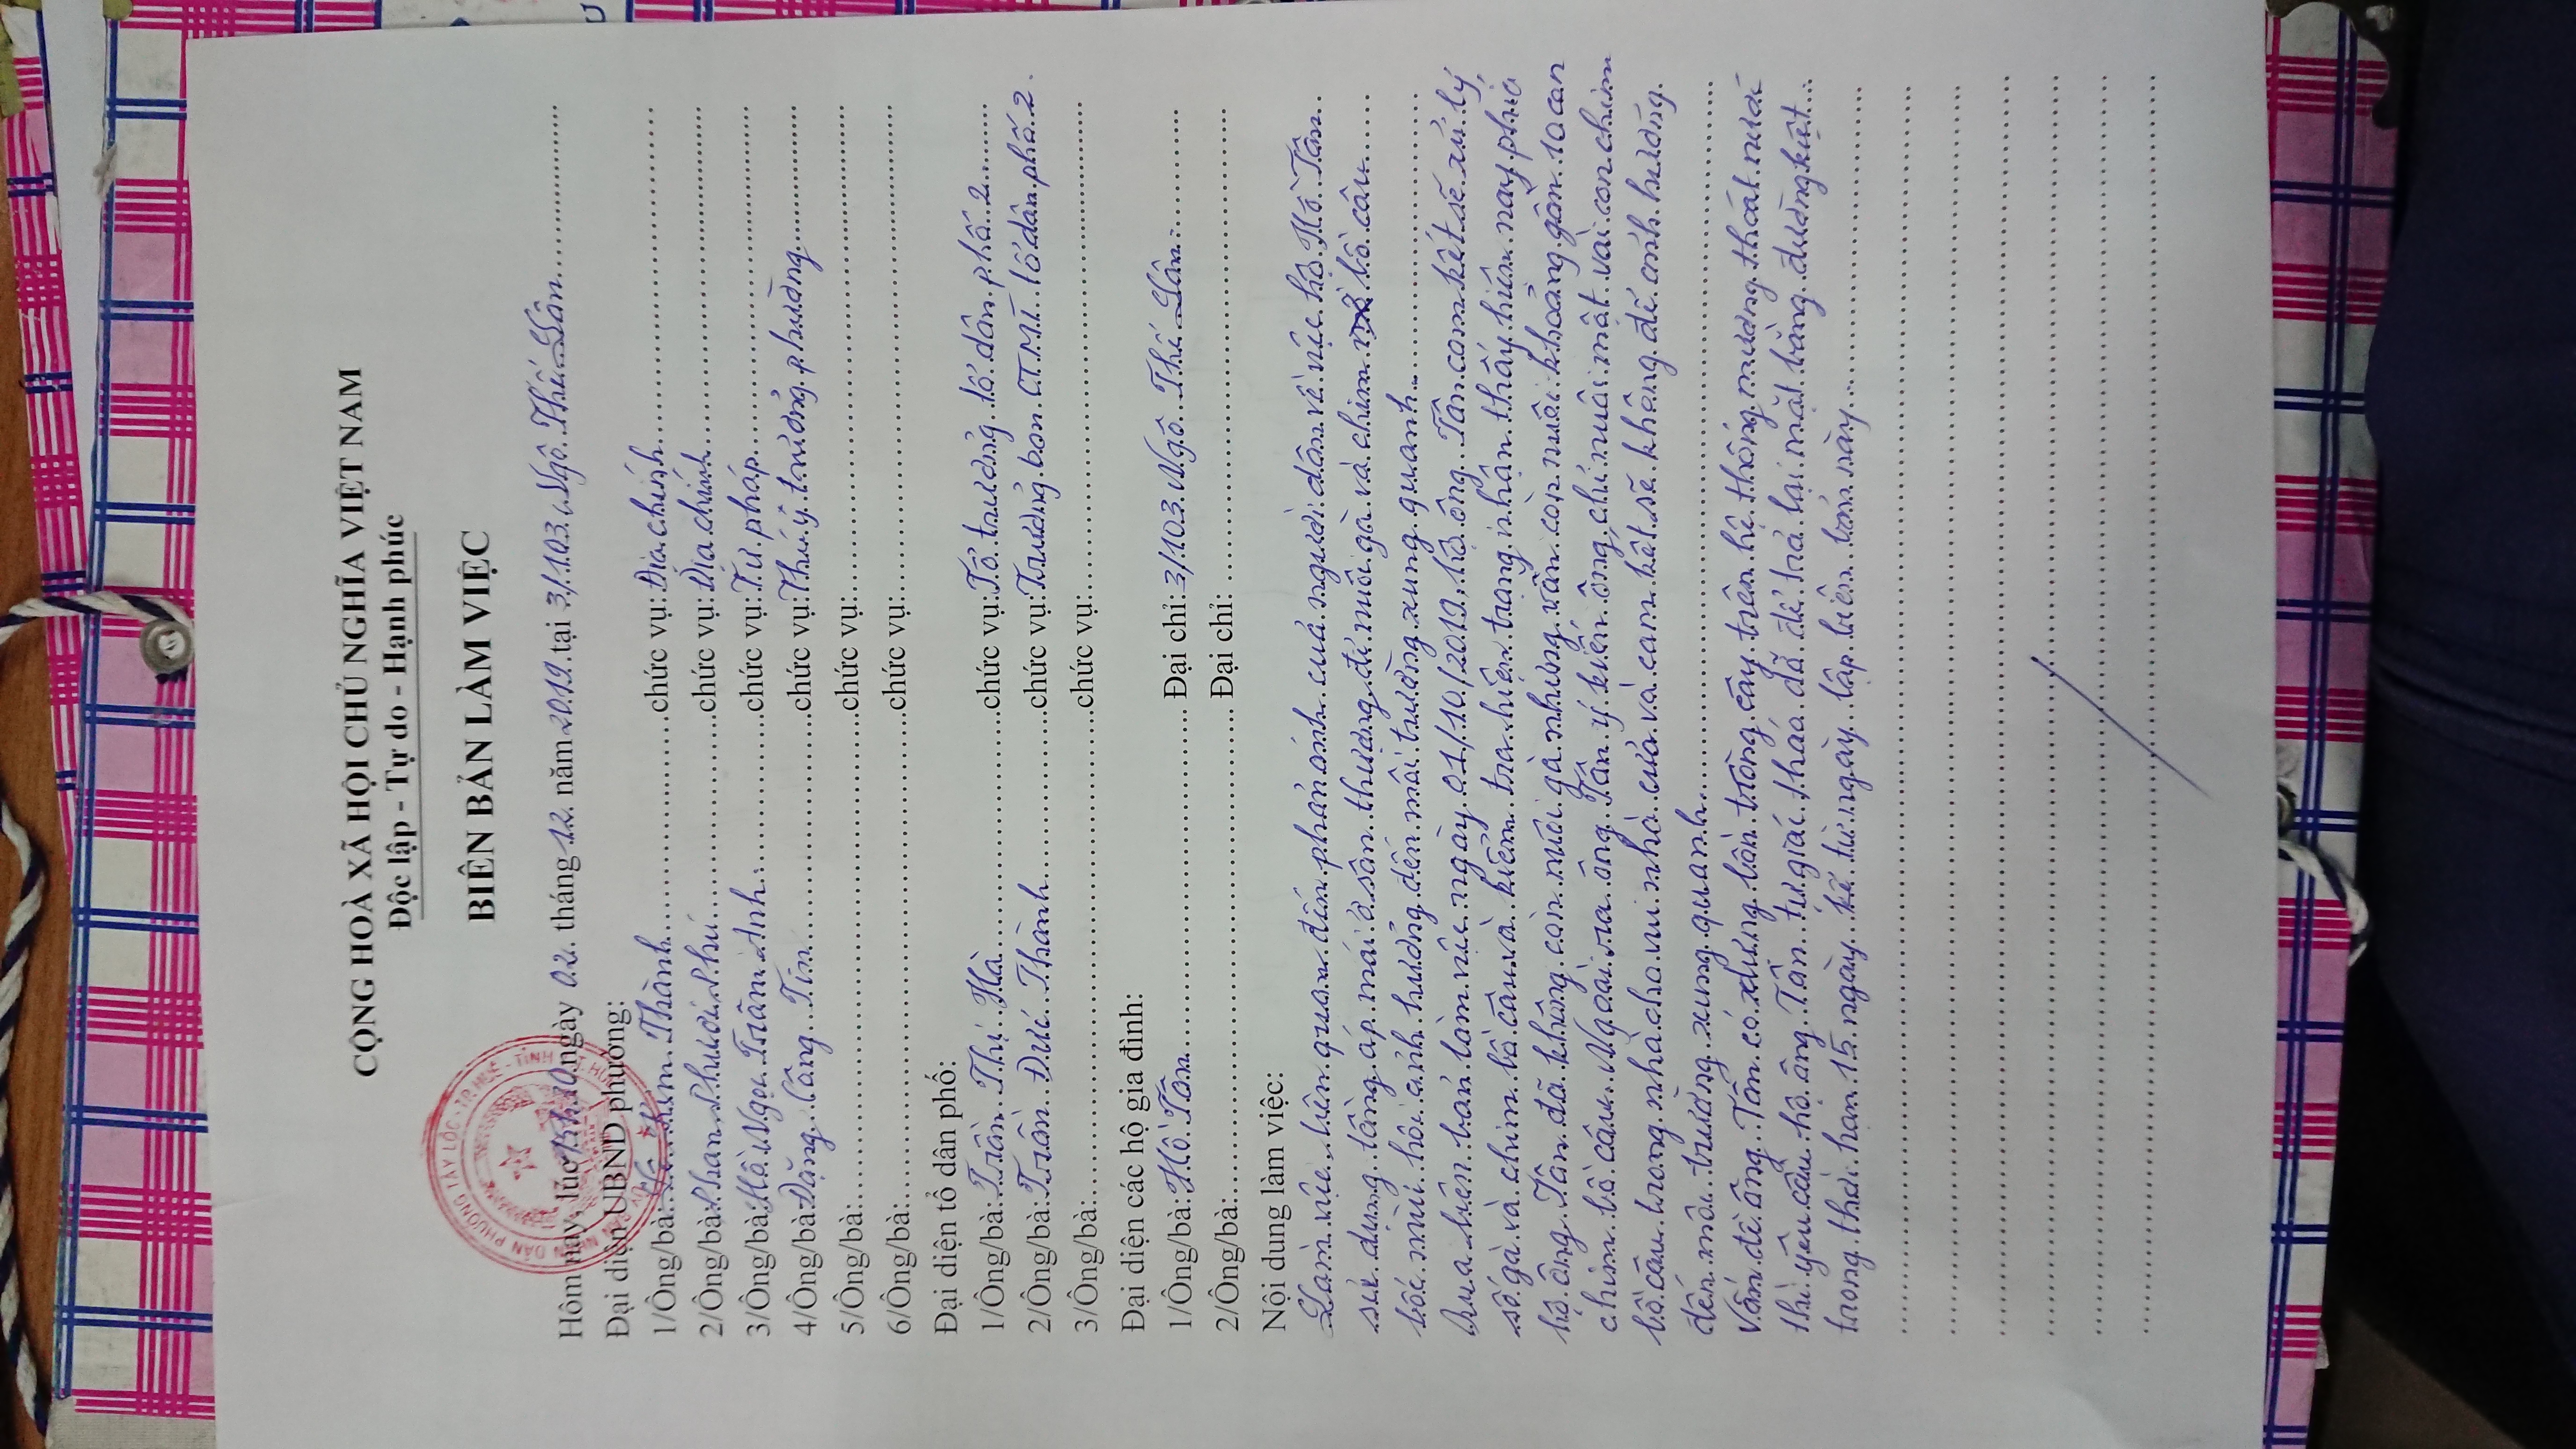 CỘNG HOÀ XÃ HỘI CHỦ NGHĨA VIỆT NAM
Độc lập - Tự do - Hạnh phúc
BIÊN BẢN LÀM VIỆC
Hôm nay, lúc ngày 02 tháng 12 năm 2019 tại 3/103 Ngô Thế Lân
Đại diện UBND phường:
1/Ông/bà: Thành chức vụ: Địa chính
2/Ông/bà: Phan Phước Phú chức vụ: Địa chính
3/Ông/bà: Hồ Ngọc Trâm Anh chức vụ: Tư pháp
4/Ông/bà: Đặng Công Tín chức vụ: Thú y trưởng phường
5/Ông/bà: chức vụ:
6/Ông/bà: chức vụ:
Đại diện tổ dân phố:
1/Ông/bà: Trần Thị Hà chức vụ: Tổ trưởng tổ dân phố 2
2/Ông/bà: Trần Đức Thành chức vụ: Trưởng ban CTMT tổ dân phố 2
3/Ông/bà: chức vụ:
Đại diện các hộ gia đình:
1/Ông/bà: Hồ Tân Đại chỉ: 3/103 Ngô Thế Lân
2/Ông/bà: Đại chỉ:
Nội dung làm việc:
Làm việc liên quan đến phản ánh của người dân về việc hộ Hồ Tân
sử dụng tầng áp mái ở sân thượng để nuôi gà và chim bồ câu
bốc mùi hôi ảnh hưởng đến môi trường xung quanh
Qua biên bản làm việc ngày 01/10/2019, hộ ông Tân cam kết sẽ xử lý
số gà và chim bồ câu và kiểm tra hiện trạng nhận thấy hiện nay phía
hộ ông Tân đã không còn nuôi gà nhưng vẫn còn nuôi khoảng gần 10 con
chim bồ câu. Ngoài ra ông Tân ý kiến ông chỉ nuôi một vài con chim
bồ câu trong nhà cho vui nhà cửa và cam kết sẽ không để ảnh hưởng
đến môi trường xung quanh
Vấn đề ông Tân có xây bồn trồng cây trên hệ thống mương thoát nước
thì yêu cầu hộ ông Tân tự giác tháo dỡ để trả lại mặt bằng đường kiệt
trong thời hạn 15 ngày kể từ ngày lập biên bản này